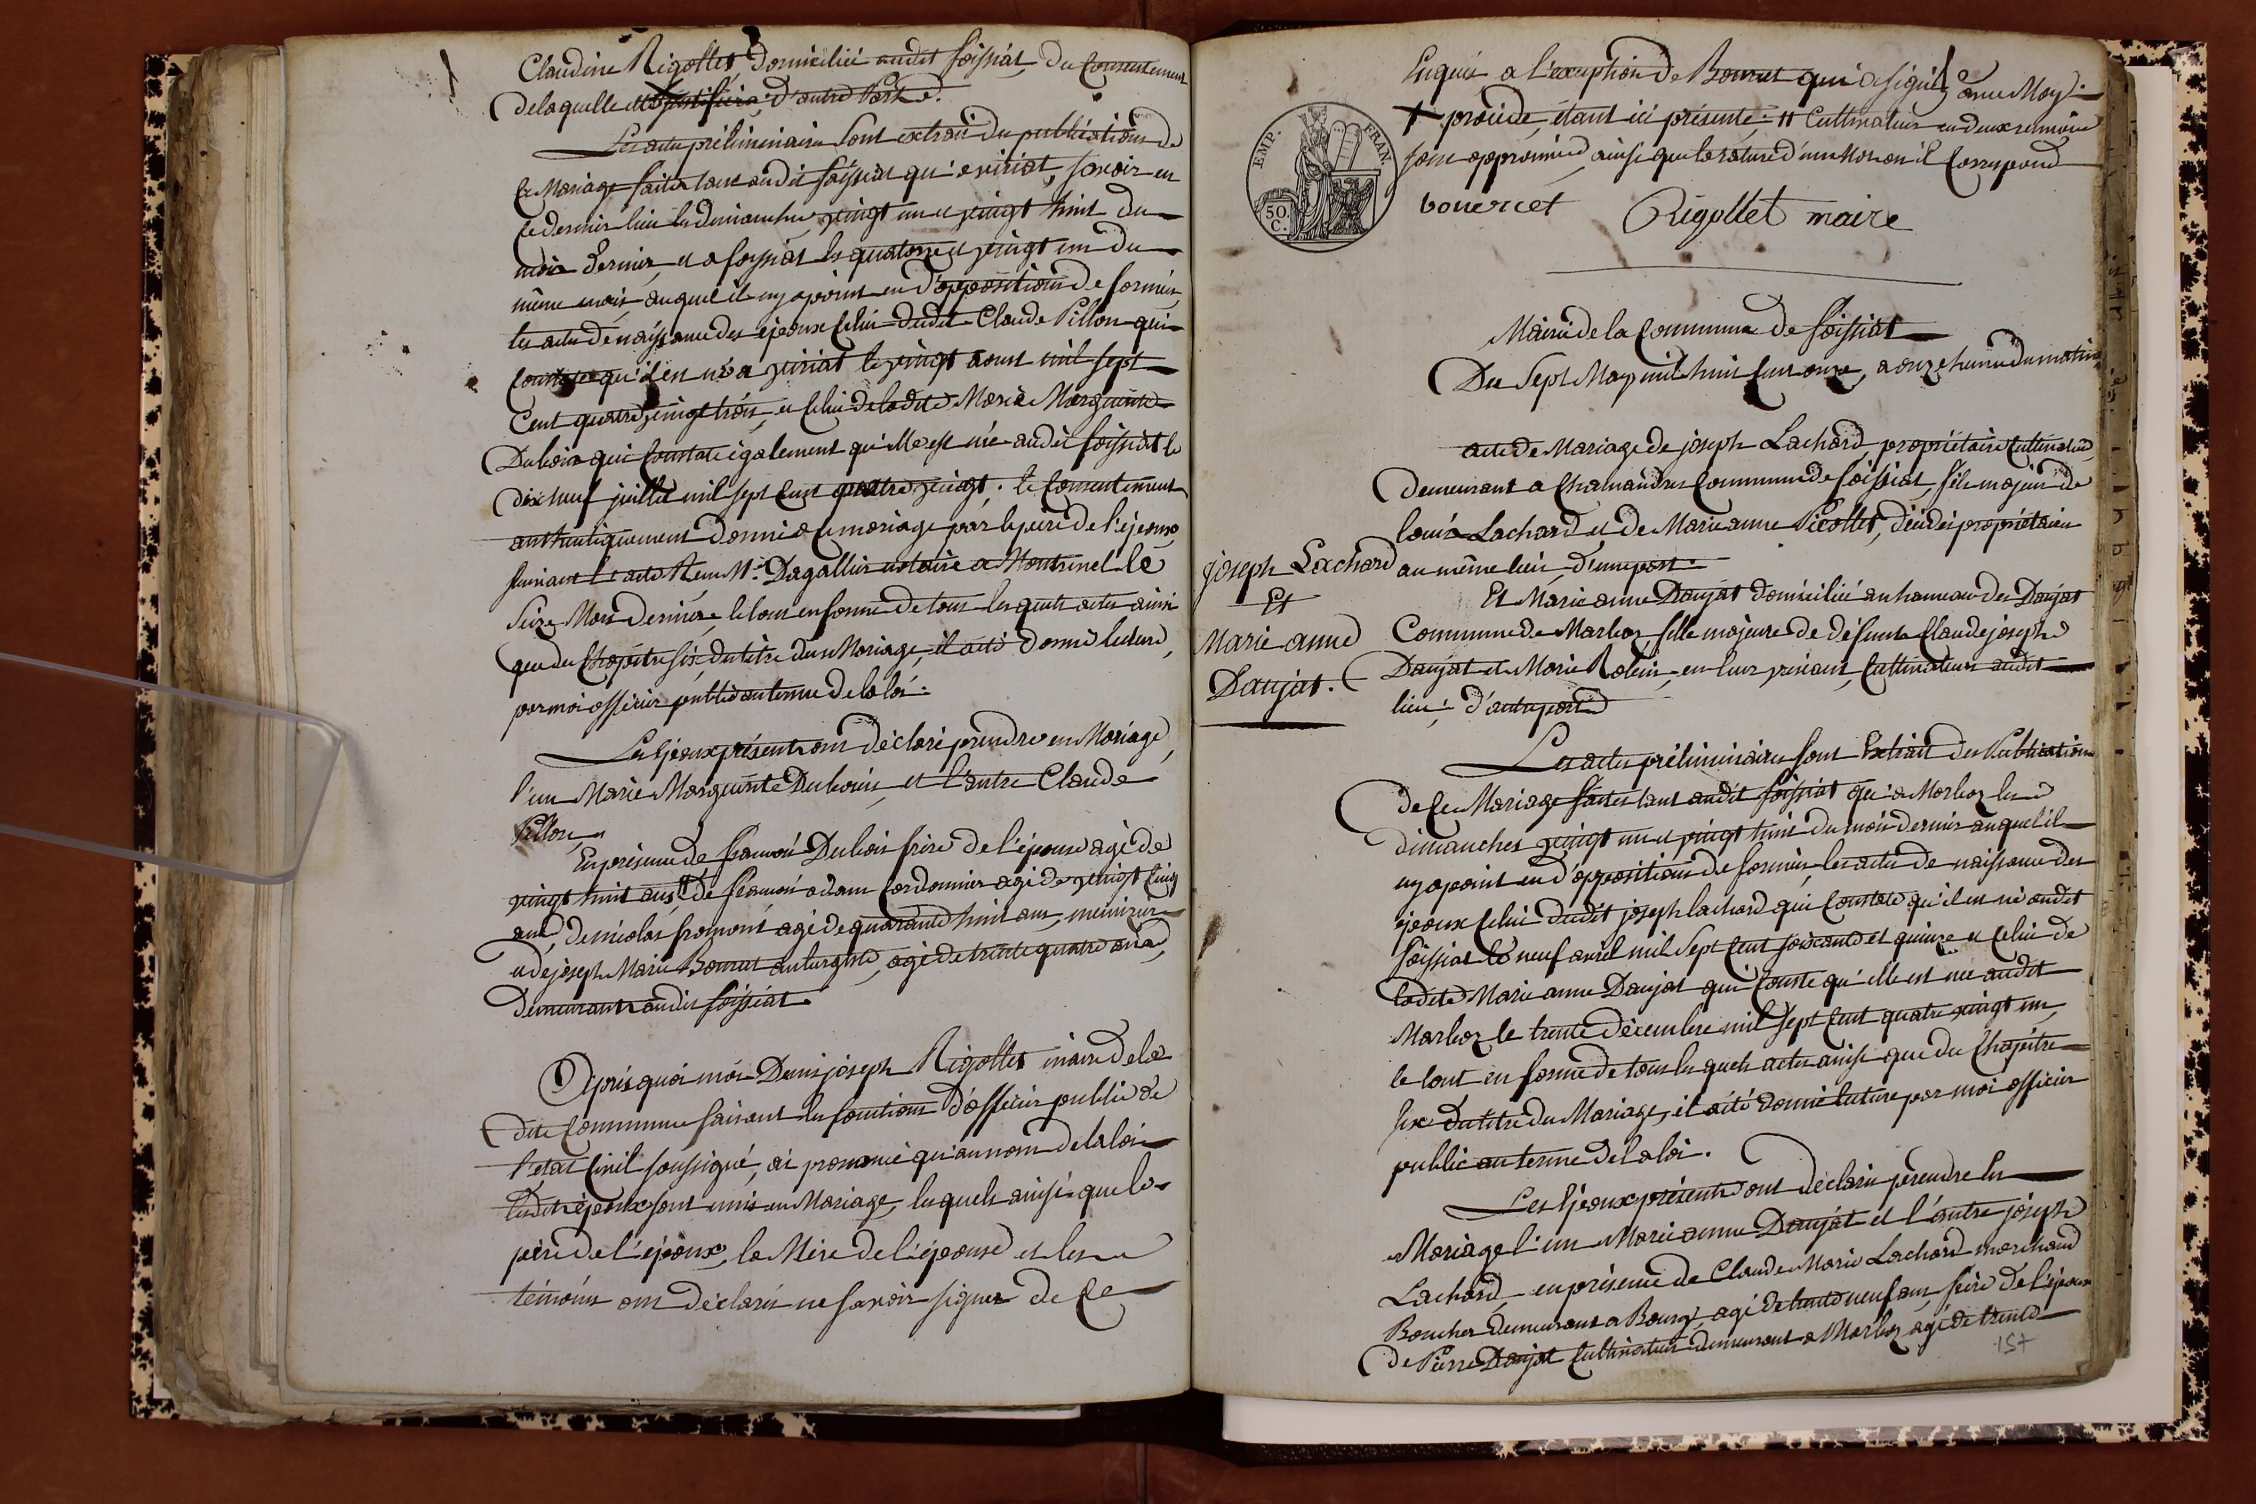 Claudine Rigollet domiciliée audit foissiat, du Consentement
de laquelle d'autre Part.
Les actes préliminaires sont extrait des publications de
ce Mariage faites tant audit foissiat qu'a viriat, savoir en
ce dernier lieu les dimanches vingt un et vingt huit du
mois dernier, et a foissiat les quatorze et vingt un du
même mois, auquel il n'y a point eu d'opposition de formée,
les actes de naissance des époux Celui dudit Claude Pillon qui
Constate qu'il est né a viriat le vingt aoust mil sept
Cent quatre vingt trois, et Celui de ladite Marie Marguerite
Dubois qui Constate également qu'elle est née audit foissiat le
dix neuf juillet mil sept Cent quatre vingt. le Consentement
authentiquement donné a ce mariage par le père de l'époux,
suivant l'acte Reçu Me. Dagallier notaire a Montrevel le
seize Mars dernier, le tout en forme de tous les quels actes ainsi
que du Chapitre six, du titre du Mariage, il a été donné lecture,
par moi officier public au terme de la loi.
Les époux présents ont déclaré prendre en Mariage,
l'un Marie Marguerite Dubois, et l'autre Claude
Pillon,
En présence de françois Dubois frère de l'épouse agé de
vingt huit ans, de françois adam Cordonnier agé de vingt Cinq
ans, de nicolas fromont agé de quarante huit ans, menuisier
et de joseph Marie Bouvret aubergiste, agé de trente quatre ans,
demeurants audit foissiat.
Après quoi moi Denis joseph Rigollet maire de la
dite Commune faisant les fonctions d'officier public de
l'état Civil soussigné, ai prononcé qu'au nom de la loi
lesdits époux sont unis en Mariage, lesquels ainsi que le
père de l'époux, la Mère de l'épouse et les
témoins ont déclarés ne savoir signer de Ce
Enquis a l'exception de Bouvret qui a signé avec Moy.
+ procède, étant ici présente. 11 Cultivateurs en deux renvois
sont approuvé, ainsi que la rature d'un Mot on il Correspond
bouvrcet Rigollet maire
EMP. FRAN.
50 C.
Mairie de la Commune de foissiat
Du Sept May mil huit Cent onze, a onze heure du matin
acte de Mariage de joseph Lachard, propriétaire Cultivateur,
demeurant a Chamandre Commune de foissiat, fils majeur de
louis Lachard et de Marie anne Picollet, décédés propriétaires
au même lieu, d'une part.
joseph Lachard
Et
Marie anne
Daujat.
Et Marie anne Daujat domiciliée au hameau des Daujat
Commune de Marboz, fille majeure de défunts Claude joseph
Daujat et Marie Robin, en leur vivant, Cultivateurs audit
lieu, d'autre part
Les actes préliminaires sont Extrait des Publications
de Ce Mariage faites tant audit foissiat qu'a Marboz les
dimanches vingt un et vingt huit du mois dernier auquel il
n'y a point eu d'opposition de formée, les actes de naissance des
époux Celui dudit joseph lachard qui Constate qu'il est né audit
foissiat le neuf avril mil Sept Cent soixante et quinze et Celui de
ladite Marie anne Daujat qui Conste qu'elle est née audit
Marboz le trente décembre mil sept Cent quatre vingt un,
le tout en forme de tous les quels actes ainsi que du Chapitre
six du titre du Mariage, il a été donné lecture par moi officier
public au terme de la loi.
Les époux présents ont déclaré prendre en
Mariage l'un Marie anne Daujat et l'autre joseph
Lachard, en présence de Claude Marie Lachard marchand
Boucher demeurant a Bourg, agé de trente neuf ans, frère de l'époux
de Pierre Daujat Cultivateur demeurant a Marboz agé de trente
157